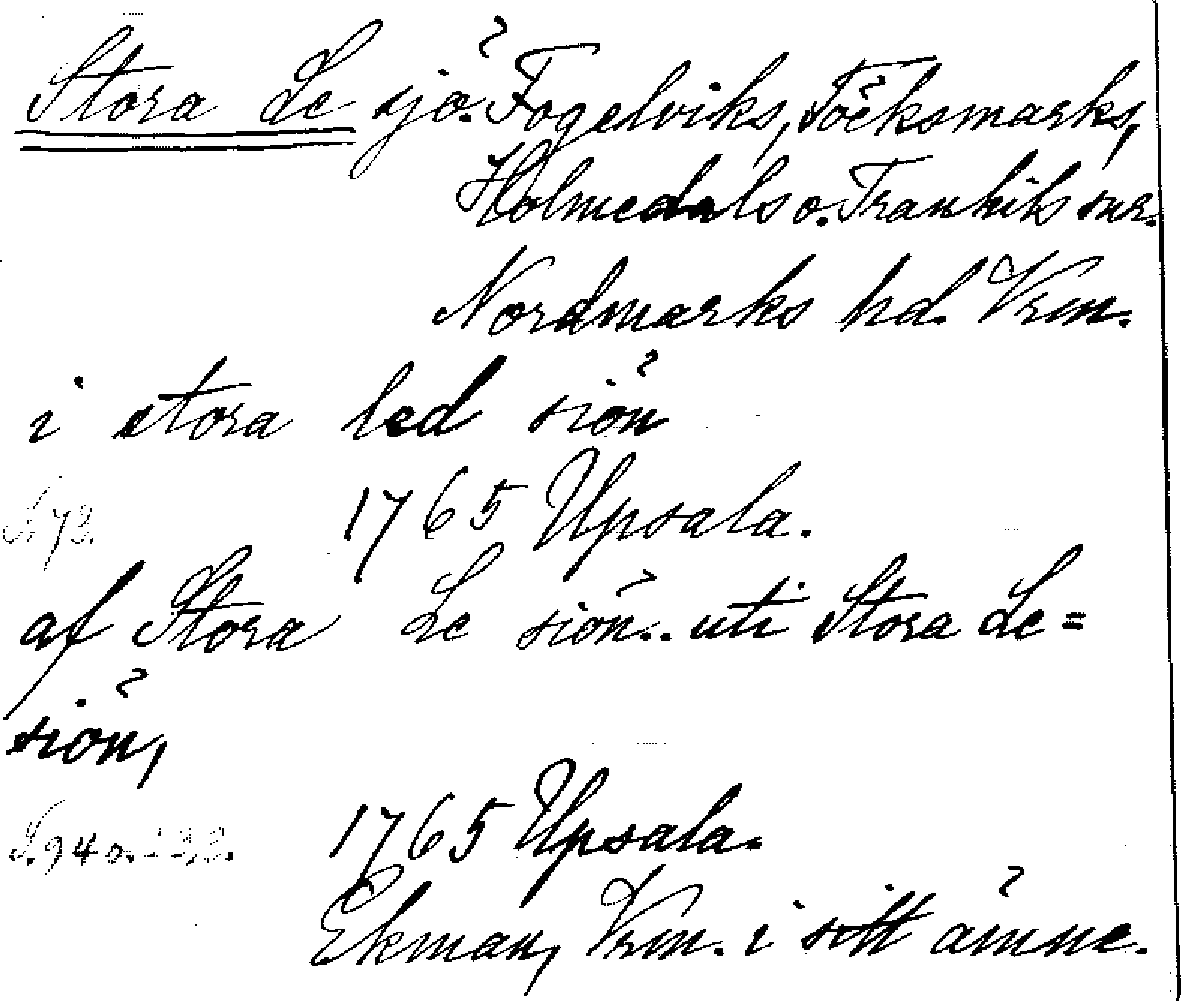 Stora Le sjö. Fogelviks, Töcksmarks,
Holmedals o. Trankils snr.
Nordmarks hd. Vrm.
i stora led siön
S. 72. 1765 Upsala.
af Stora Le siön.. uti Stora Le=
siön,
S. 94 o. 1765 Upsala.
Ekman, Vrm. i sitt ämne.